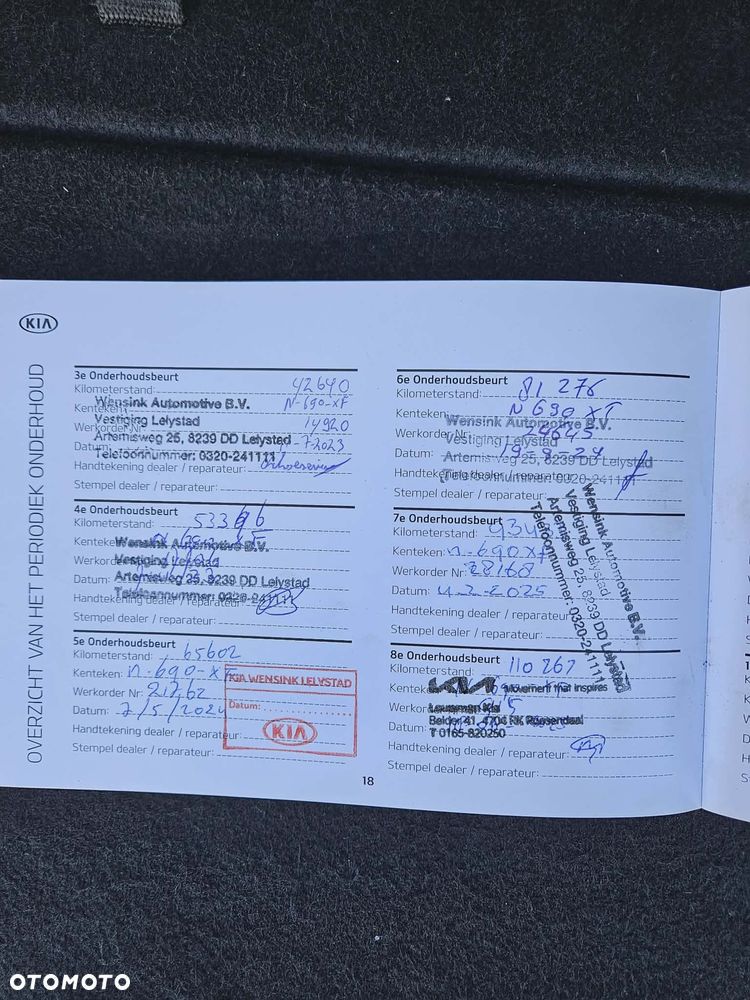 KIA
OVERZICHT VAN HET PERIODIEK ONDERHOUD
3e Onderhoudsbeurt
Kilometerstand: 42640
Kenteken: N-690-XF
Wensink Automotive B.V.
Vestiging Lelystad
Werkorder Nr: 14920
Artemisweg 25, 8239 DD Lelystad
Datum: -7-2023
Telefoonnummer: 0320-241111
Handtekening dealer / reparateur:
Stempel dealer / reparateur:
4e Onderhoudsbeurt
Kilometerstand:
Kenteken:
Wensink Automotive B.V.
Vestiging Lelystad
Werkorder
Datum:
Artemisweg 25, 8239 DD Lelystad
Telefoonnummer: 0320-241111
Handtekening dealer / reparateur:
Stempel dealer / reparateur:
5e Onderhoudsbeurt
Kilometerstand: 65602
Kenteken: N-690-XF
Werkorder Nr: 21262
Datum: 7/5/2024
KIA WENSINK LELYSTAD
Datum:
KIA
Handtekening dealer / reparateur:
Stempel dealer / reparateur:
18
6e Onderhoudsbeurt
Kilometerstand: 81 276
Kenteken: N 690 XF
Wensink Automotive B.V.
Werkorder Nr:
Vestiging Lelystad
Datum: 19-9-24
Artemisweg 25, 8239 DD Lelystad
Handtekening dealer / reparateur:
Telefoonnummer: 0320-241111
Stempel dealer / reparateur:
7e Onderhoudsbeurt
Kilometerstand:
Kenteken: N-690XF
Werkorder Nr: 28168
Datum: 4-2-2025
Handtekening dealer / reparateur:
Stempel dealer / reparateur:
Wensink Automotive B.V.
Vestiging Lelystad
Artemisweg 25, 8239 DD Lelystad
Telefoonnummer: 0320-241111
8e Onderhoudsbeurt
Kilometerstand: 110 267
Kenteken:
KIA Movement that inspires
Werkorder
Datum:
Belder 41, 4704 RK Roosendaal
T 0165-820250
Handtekening dealer / reparateur:
Stempel dealer / reparateur:
OTOMOTO